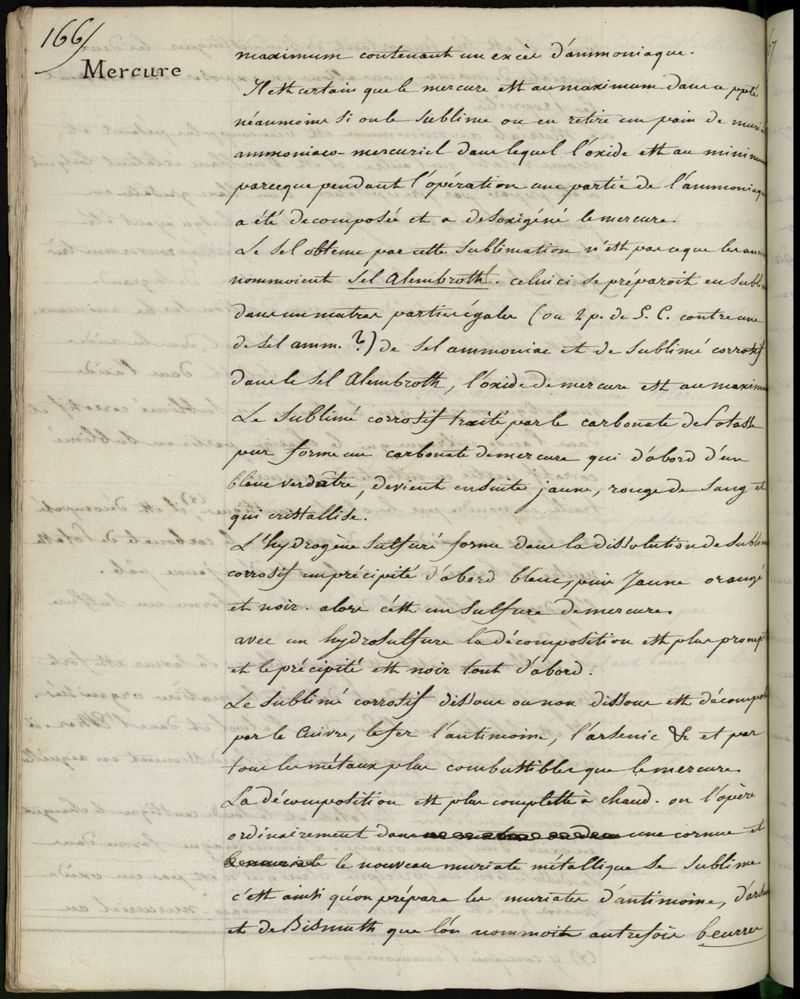 166/
Mercure
maximum contenant un excès d'ammoniaque.
Il est certain que le mercure est au maximum dans ce ppté
néanmoins si on le sublime on en retire un pain de muri
ammoniaco-mercuriel dans lequel l'oxide est au minimum
parceque pendant l'opération une partie de l'ammoniaque
a été decomposée et a desoxigéné le mercure.
Le sel obtenu par cette sublimation n'est pas ce que les anci
nommoient Sel Alembroth. celui ci se préparoit en subli
dans un matras parties égales (ou 2 p. de S. C. contre une
de sel amm. ?) de sel ammoniac et de sublimé corrosif
dans le sel Alembroth, l'oxide de mercure est au maximum
Le Sublimé corrosif traité par le carbonate de Potasse
pur forme un carbonate de mercure qui d'abord d'un
blanc verdâtre, devient ensuite jaune, rouge de sang et
qui cristallise.
L'hydrogène sulfuré forme dans la dissolution de sublimé
corrosif un précipité d'abord blanc, puis jaune orangé
et noir. alors c'est un sulfure de mercure.
avec un hydrosulfure la décomposition est plus prompte
et le précipité est noir tout d'abord.
Le sublimé corrosif dissous ou non dissous est décomposé
par le Cuivre, le fer l'antimoine, l'arsenic &c et par
tous les métaux plus combustibles que le mercure.
La décomposition est plus complette à chaud. on l'opère
ordinairement dans une cornue et
le nouveau muriate métallique se sublime
c'est ainsi qu'on prépare les muriates d'antimoine, d'arsen
et de Bismuth que l'on nommoit autrefois beurres